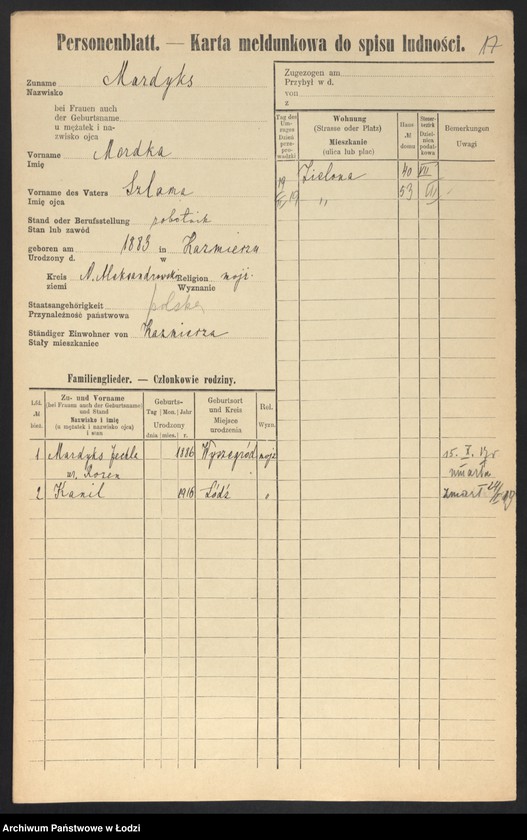 Personenblatt. — Karta meldunkowa do spisu ludności.
17
Zuname
Nazwisko
Mardyks
bei Frauen auch
der Geburtsname
u mężatek i na-
zwisko ojca
Vorname
Imię
Mordka
Vorname des Vaters
Imię ojca
Szlama
Stand oder Berufsstellung
Stan lub zawód
robotnik
geboren am 1883 in Kazmierza
Urodzony d. w
Kreis N. Aleksandrowski Religion mojż.
ziemi Wyznanie
Staatsangehörigkeit
Przynależność państwowa
polska
Ständiger Einwohner von
Stały mieszkaniec
Kazmierza
Zugezogen am
Przybył w d.
von
z
Tag des
Um-
zuges
Dzień
prze-
pro-
wadzki
Wohnung
(Strasse oder Platz)
Mieszkanie
(ulica lub plac)
Haus
№
domu
Steuer-
bezirk
Dziel-
nica
podat-
kowa
Bemerkungen
Uwagi
19 Zielona 40 VII
19 „ 53
Familienglieder. — Członkowie rodziny.
Lfd.
№
bież.
Zu- und Vorname
(bei Frauen auch der Geburtsname)
und Stand
Nazwisko i imię
(u mężatek i nazwisko ojca)
i stan
Geburts-
Tag Mon. Jahr
Urodzony
dnia mies. r.
Geburtsort
und Kreis
Miejsce
urodzenia
Rel.
Wyzn.
1 Mardyks 1886 Wyszogród mojż
ur. Rozen
15. X. umarła
2 1916 Łódź „ zmarł
Archiwum Państwowe w Łodzi